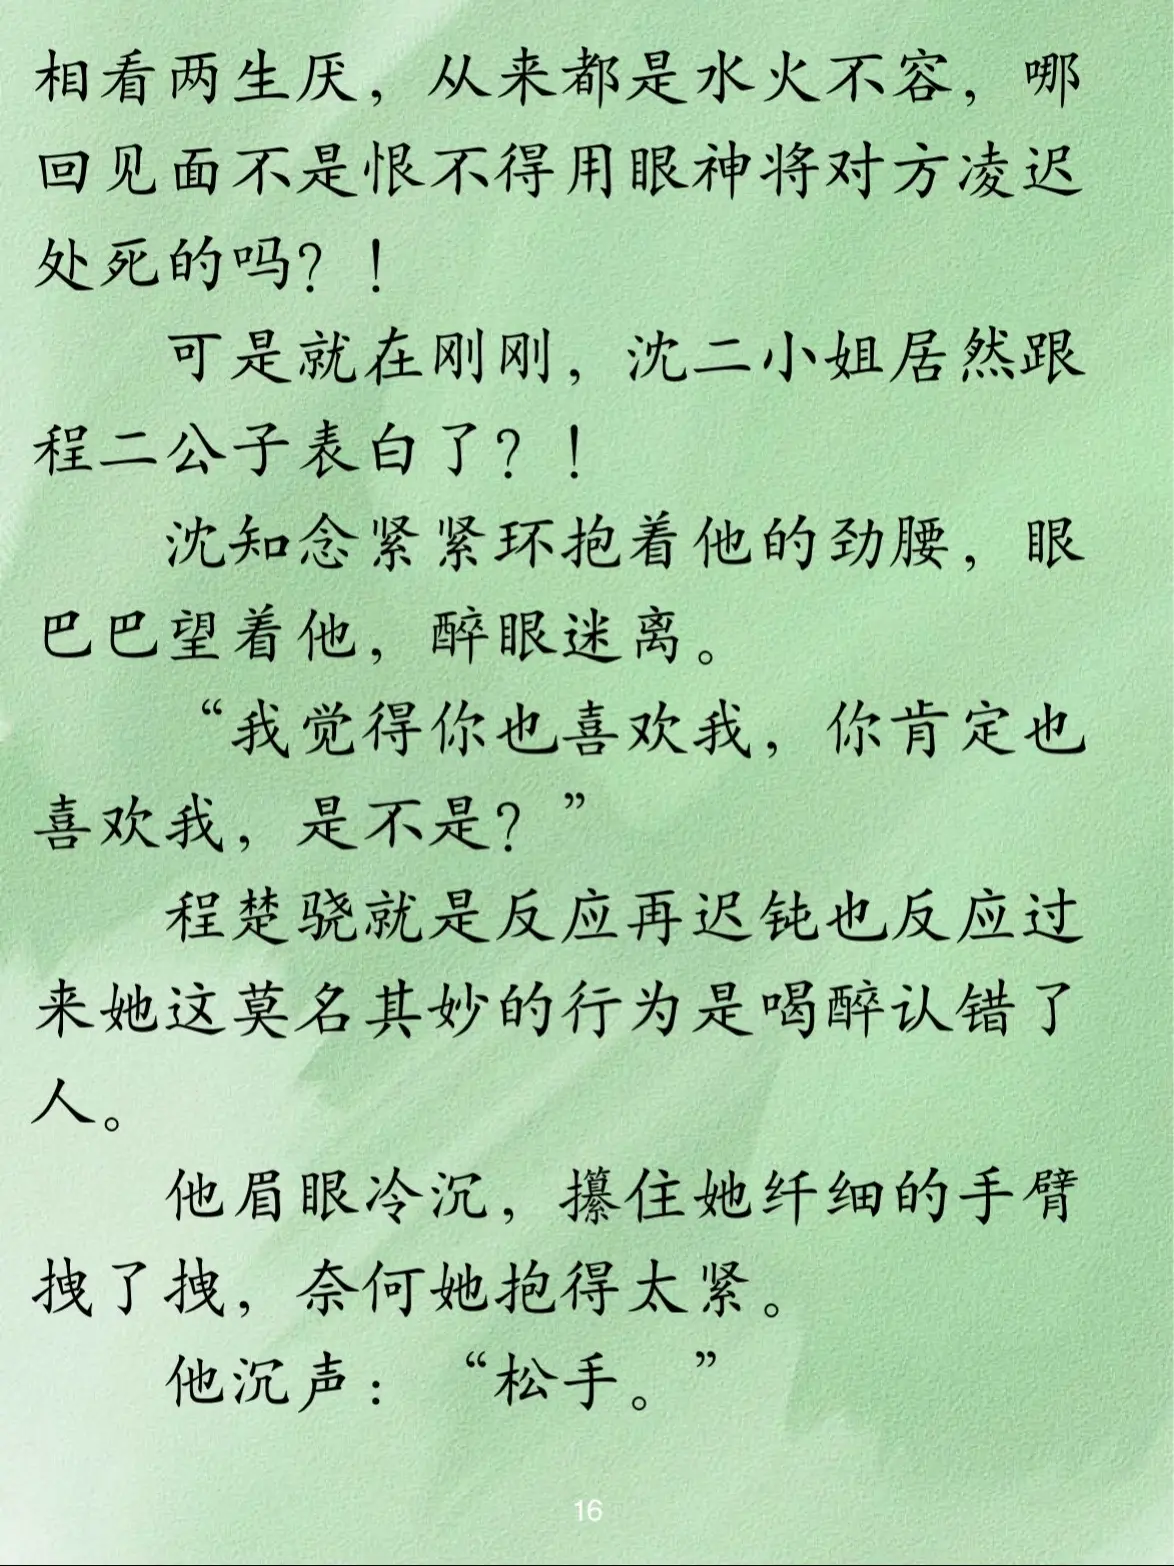 相看两生厌，从来都是水火不容，哪
回见面不是恨不得用眼神将对方凌迟
处死的吗？！
可是就在刚刚，沈二小姐居然跟
程二公子表白了？！
沈知念紧紧环抱着他的劲腰，眼
巴巴望着他，醉眼迷离。
“我觉得你也喜欢我，你肯定也
喜欢我，是不是？”
程楚骁就是反应再迟钝也反应过
来她这莫名其妙的行为是喝醉认错了
人。
他眉眼冷沉，攥住她纤细的手臂
拽了拽，奈何她抱得太紧。
他沉声：“松手。”
16